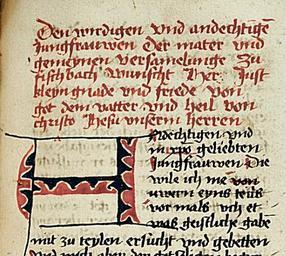 Den wirdigen vnd andechtigē
Jungfrauwen Der mater vnd
gemeynen versamelunge zu
fischbach wunscht Her Just
kleyn gnade vnd friede von
got dem vatter vnd heil von
christo Jhesu vnserm herren
Andechtigen vnd
in xpo geliebten
Jungfrauwen Die
wile ich me von
uwern eyns teils
vor mals vch et
was geistliche gabe
mit zu teylen ersucht vnd gebetten